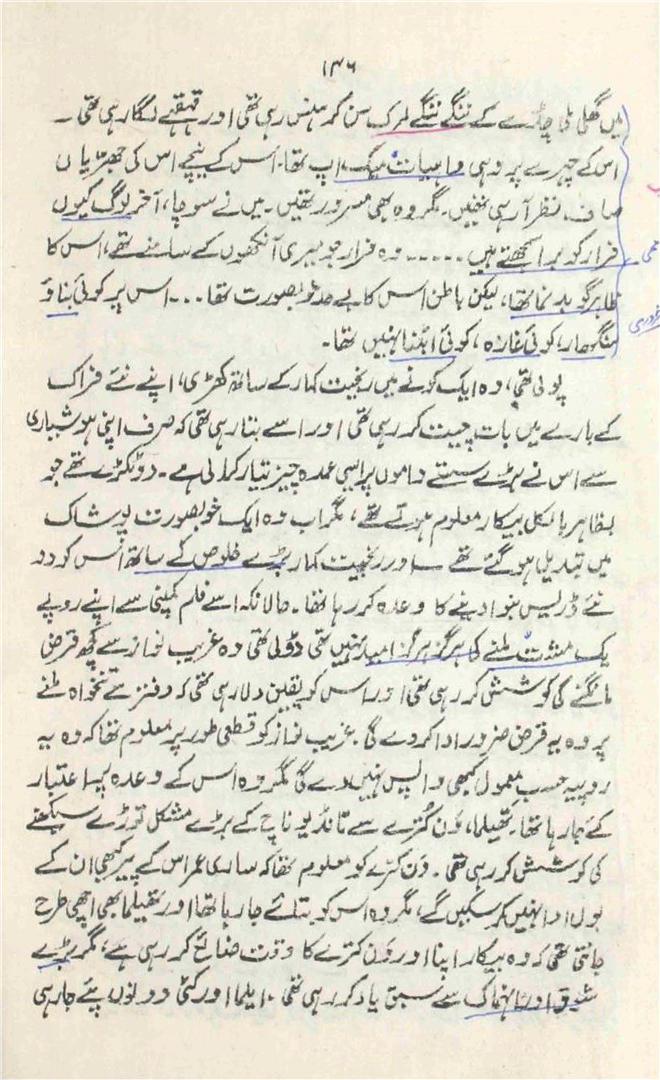 ۱۳۶
میں گھلی ملی چاڈے کے ننگے ننگے لمرک سن کر ہنس رہی تھی اور قہقہے لگا رہی تھی۔
اس کے چہرے پر وہی واہیات میک اپ تھا۔ اس کے نیچے اس کی جھریاں
صاف نظر آ رہی تھیں۔ مگر وہ بھی مسرور تھیں۔ میں نے سوچا، آخر لوگ کیوں
فرار کو برا سمجھتے ہیں ..... وہ فرار جو میری آنکھوں کے سامنے تھے، اس کا
ظاہر گو بدنما تھا، لیکن باطن اس کا بے حد خوبصورت تھا ... اس پر کوئی بناؤ
سنگھار، کوئی غازہ، کوئی ابٹنا نہیں تھا۔
پولی تھی، وہ ایک کونے میں رنجیت کمار کے ساتھ کھڑی، اپنے نئے فراک
کے بارے میں بات چیت کر رہی تھی اور اسے بتا رہی تھی کہ صرف اپنی ہوشیاری
سے اس نے بڑے سستے داموں پر ایسی عمدہ چیز تیار کرالی ہے۔ دو ٹکڑے تھے جو
بظاہر بالکل بیکار معلوم ہوتے تھے، مگر اب وہ ایک خوبصورت پوشاک
میں تبدیل ہو گئے تھے ــ اور رنجیت کمار بڑے خلوص کے ساتھ اس کو دو
نئے ڈریس بنوا دینے کا وعدہ کر رہا تھا۔ حالانکہ اسے فلم کمپنی سے اپنے روپے
یک مشت ملنے کی ہرگز ہرگز امید نہیں تھی ڈولی تھی وہ غریب نواز سے کچھ قرض
مانگنے کی کوشش کر رہی تھی اور اس کو یقین دلا رہی تھی کہ دفتر سے تنخواہ ملنے
پر وہ یہ قرض ضرور ادا کر دے گی۔ غریب نواز کو قطعی طور پر معلوم تھا کہ وہ یہ
روپیہ حسب معمول کبھی واپس نہیں دے گی مگر وہ اس کے وعدہ پر اعتبار
کئے جا رہا تھا۔ تھیلما، ون کترے سے تانڈیو ناچ کے بڑے مشکل توڑے سیکھنے
کی کوشش کر رہی تھی۔ ون کترے کو معلوم تھا کہ ساری عمر اس کے پیر کبھی ان کے
بول ادا نہیں کر سکیں گے، مگر وہ اس کو بتائے جا رہا تھا اور تھیلما بھی اچھی طرح
جانتی تھی کہ وہ بیکار اپنا اور ون کترے کا وقت ضائع کر رہی ہے، مگر بڑے
شوق اور انہماک سے سبق یاد کر رہی تھی۔ ایلما اور کٹی دونوں پئے جا رہی